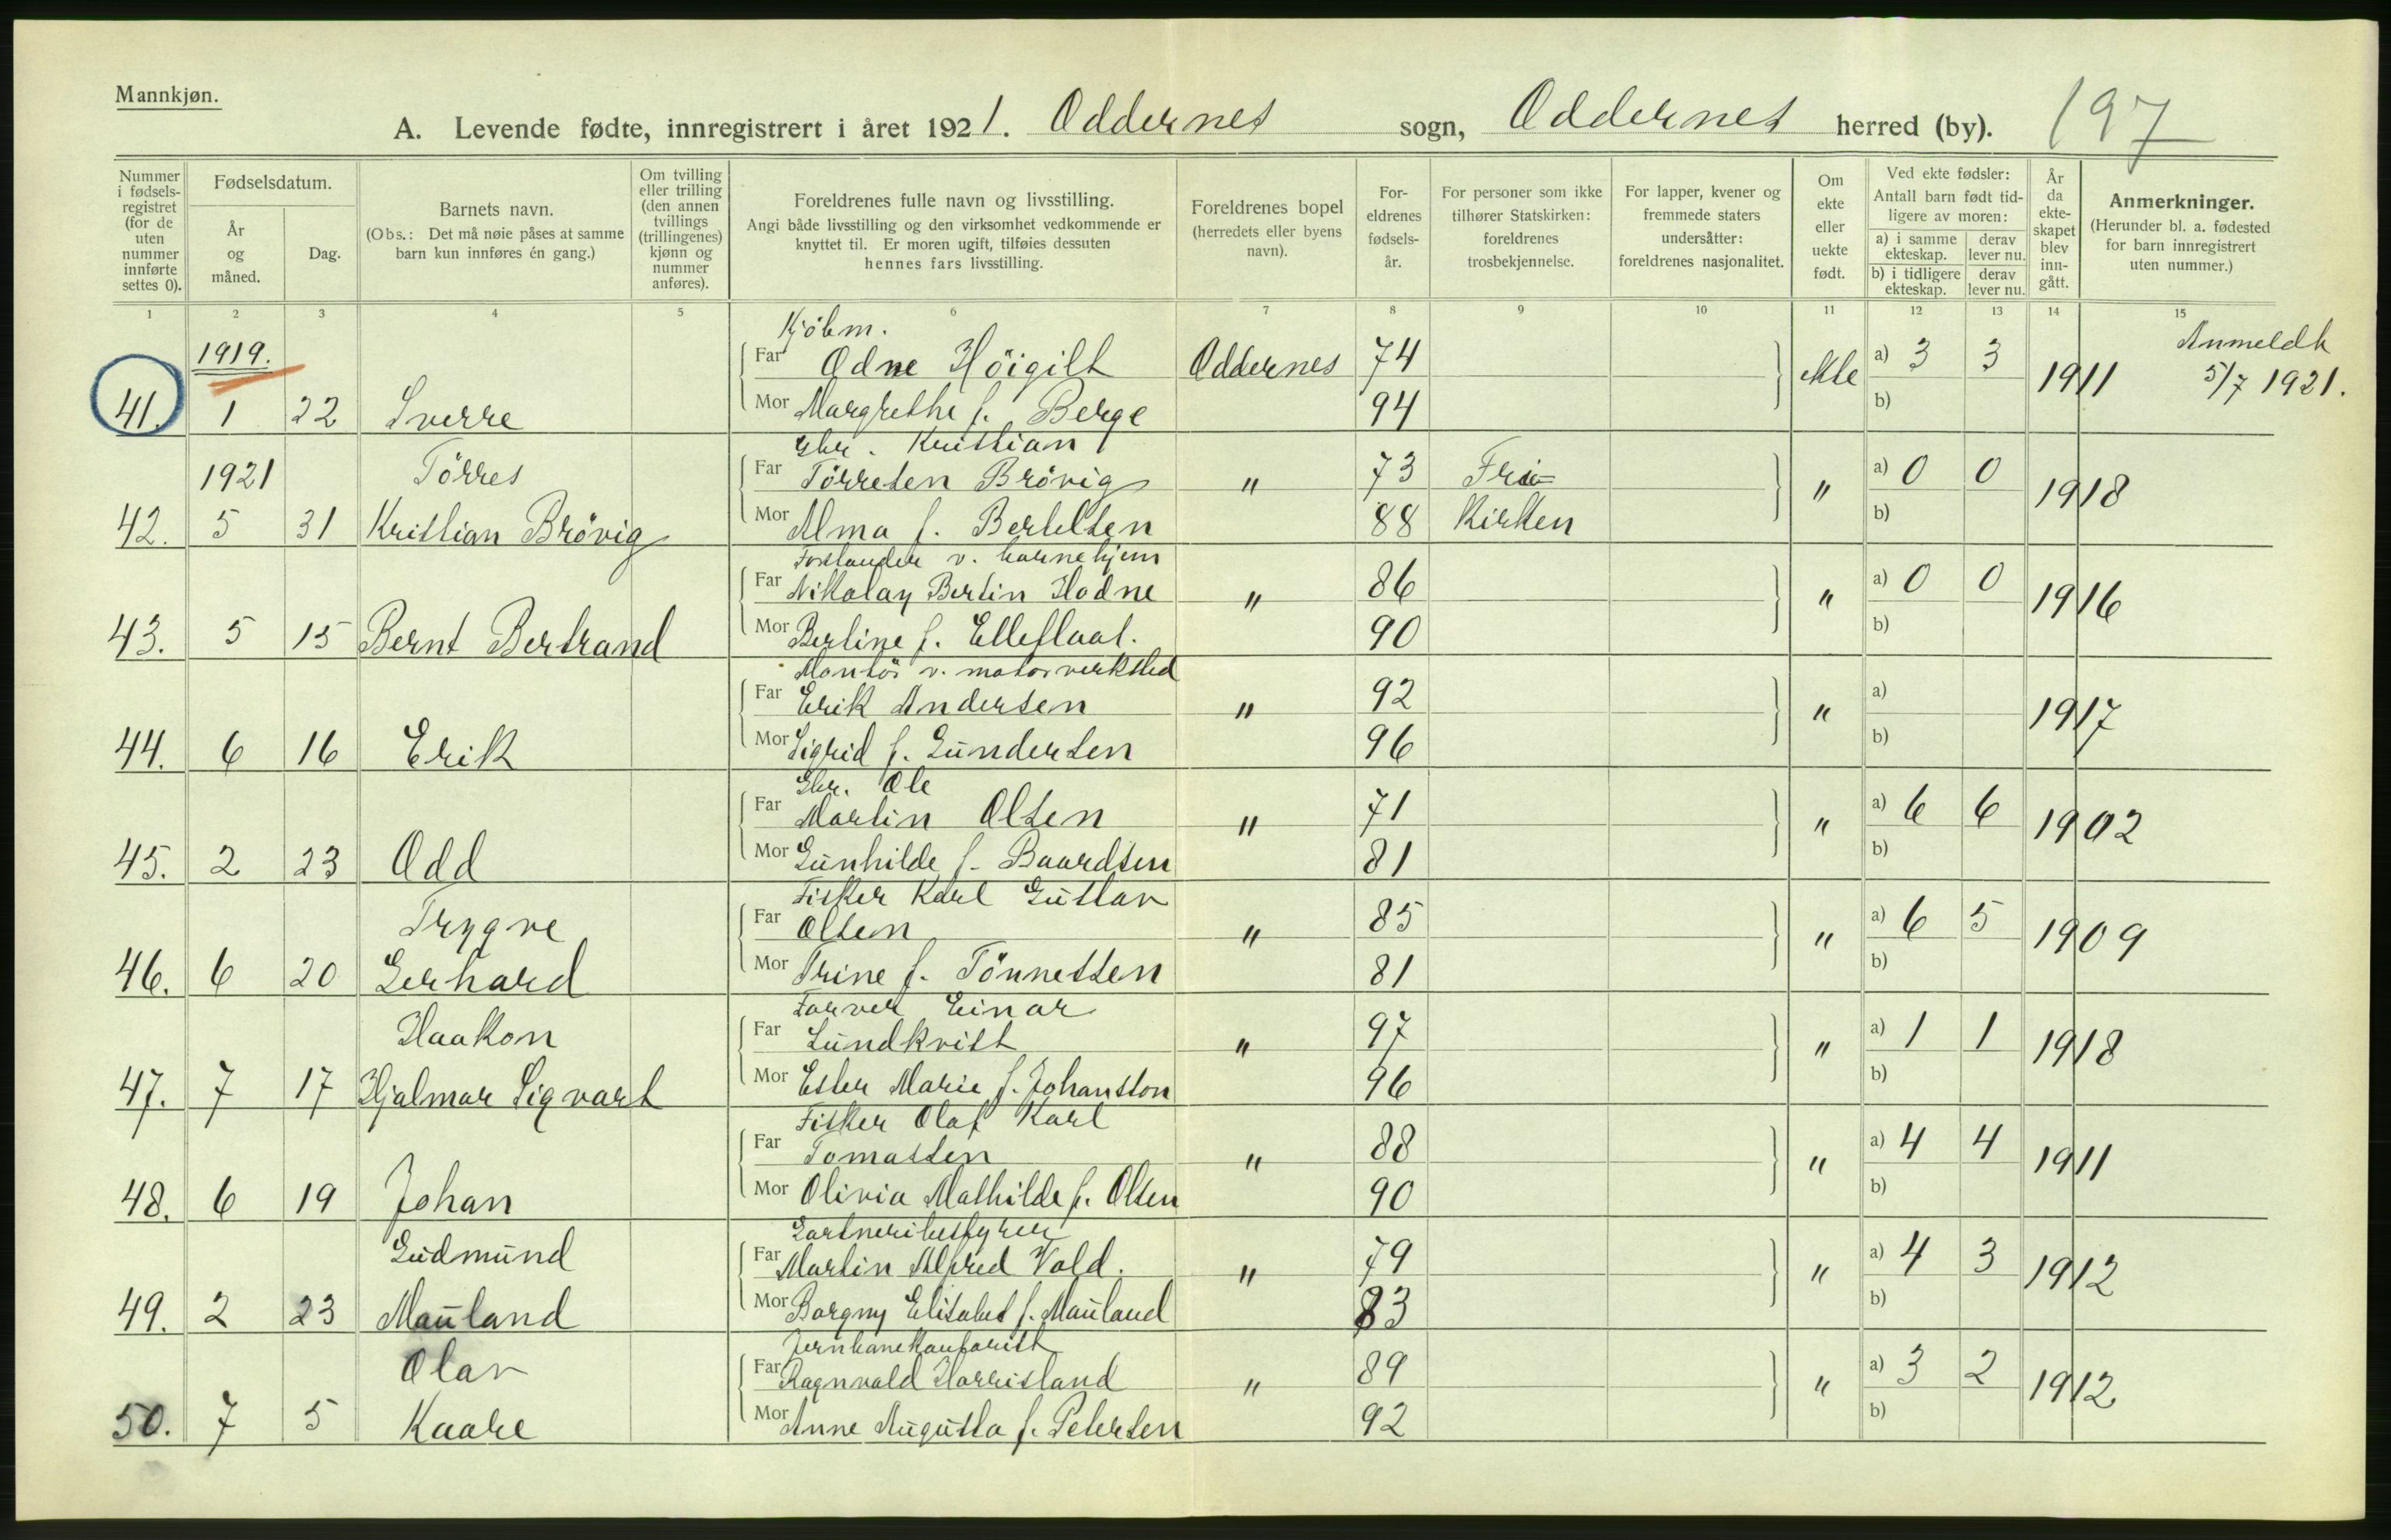 Mannkjøn.
A. Levende fødte, innregistrert i året 1921. Oddernes sogn, Oddernes herred (by). 197
Nummer i fødselsregistret (for de uten nummer innførte settes 0).
Fødselsdatum.
År og måned.
Dag.
Barnets navn.
(Obs.: Det må nøie påses at samme barn kun innføres én gang.)
Om tvilling eller trilling (den annen tvillings (trillingenes) kjønn og nummer anføres).
Foreldrenes fulle navn og livsstilling.
Angi både livsstilling og den virksomhet vedkommende er knyttet til. Er moren ugift, tilføies dessuten hennes fars livsstilling.
Foreldrenes bopel (herredets eller byens navn).
Foreldrenes fødselsår.
For personer som ikke tilhører Statskirken: foreldrenes trosbekjennelse.
For lapper, kvener og fremmede staters undersåtter: foreldrenes nasjonalitet.
Om ekte eller uekte født.
Ved ekte fødsler:
Antall barn født tidligere av moren:
a) i samme ekteskap. derav lever nu.
b) i tidligere ekteskap. derav lever nu.
År da ekteskapet blev inngått.
Anmerkninger.
(Herunder bl. a. fødested for barn innregistrert uten nummer.)
1 2 3 4 5 6 7 8 9 10 11 12 13 14 15
Kjøbm.
1919. Far Odne Høigilt Oddernes 74 ekte a) 3 3 1911 Anmeldt 5/7 1921.
41. 1 22 Sverre Mor Margrethe f. Berge 94 b)
Gbr. Kristian
1921 Tørres Far Tørresen Brøvig " 73 Fri- " a) 0 0 1918
42. 5 31 Kristian Brøvig Mor Alma f. Bertelsen 88 Kirken b)
Forstander v. barnehjem
Far Nikolay Bertin Hodne " 86 " a) 0 0 1916
43. 5 15 Bernt Bertrand Mor Bertine f. Elleflaat. 90 b)
Montør v. motorverksted
Far Erik Andersen " 92 " a) 1917
44. 6 16 Erik Mor Sigrid f. Gundersen 96 b)
Gbr. Ole
Far Martin Olsen " 71 " a) 6 6 1902
45. 2 23 Odd Mor Gunhilde f. Baardsen 81 b)
Fisker Karl Gustav
Trygve Far Olsen " 85 " a) 6 5 1909
46. 6 20 Gerhard Mor Trine f. Tønnessen 81 b)
Farver Einar
Haakon Far Lundkvist " 97 " a) 1 1 1918
47. 7 17 Hjalmar Sigvart Mor Ester Marie f. Johansson 96 b)
Fisker Olaf Karl
Far Tomassen " 88 " a) 4 4 1911
48. 6 19 Johan Mor Olivia Mathilde f. Olsen 90 b)
Gartneribestyrer
Gudmund Far Martin Alfred Vold. " 79 " a) 4 3 1912
49. 2 23 Mauland Mor Borgny Elisabet f. Mauland 83 b)
Jernbanekontorist
Olav Far Ragnvald Harrisland " 89 " a) 3 2 1912
50. 7 5 Kaare Mor Anne Augusta f. Petersen 92 b)